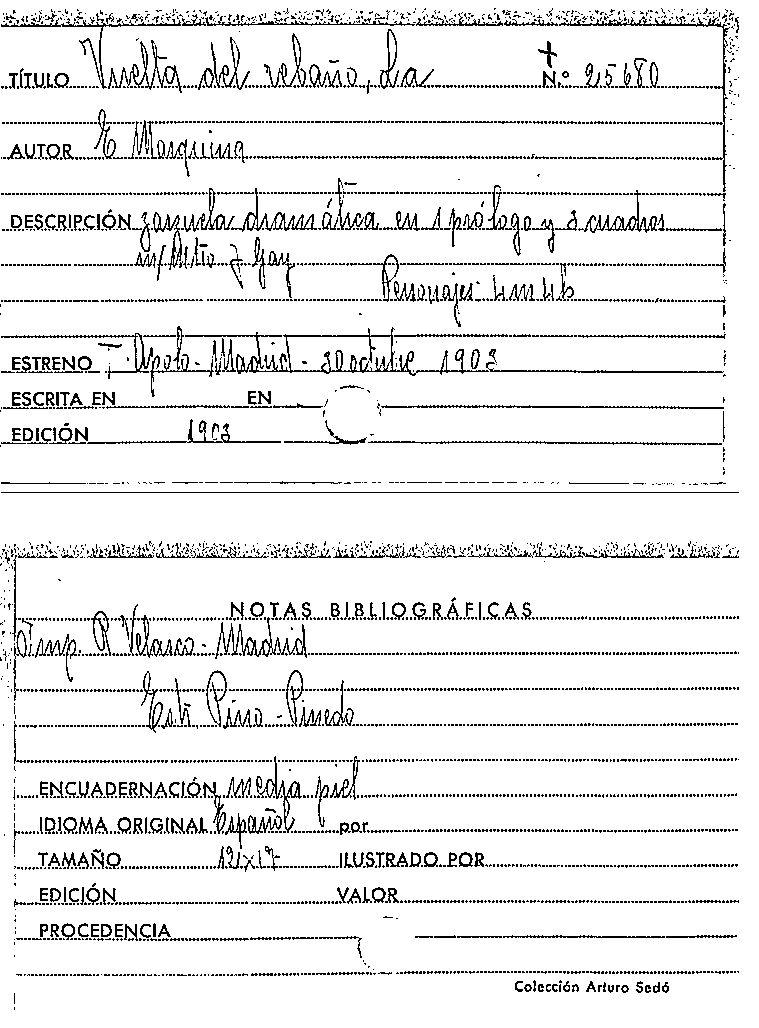 TÍTULO Vuelta del rebaño, La N.º 25680
AUTOR E Marquina
DESCRIPCIÓN zarzuela dramática en 1 prólogo y 3 cuadros
m/ Mtro J Gay
Personajes 4m 4h
ESTRENO T. Apolo - Madrid - 30 octubre 1903
ESCRITA EN EN
EDICIÓN 1903
NOTAS BIBLIOGRÁFICAS
Imp. R Velasco - Madrid
Estr Pino - Pinedo
ENCUADERNACIÓN media piel
IDIOMA ORIGINAL Español por
TAMAÑO ILUSTRADO POR
EDICIÓN VALOR
PROCEDENCIA
Colección Arturo Sedó